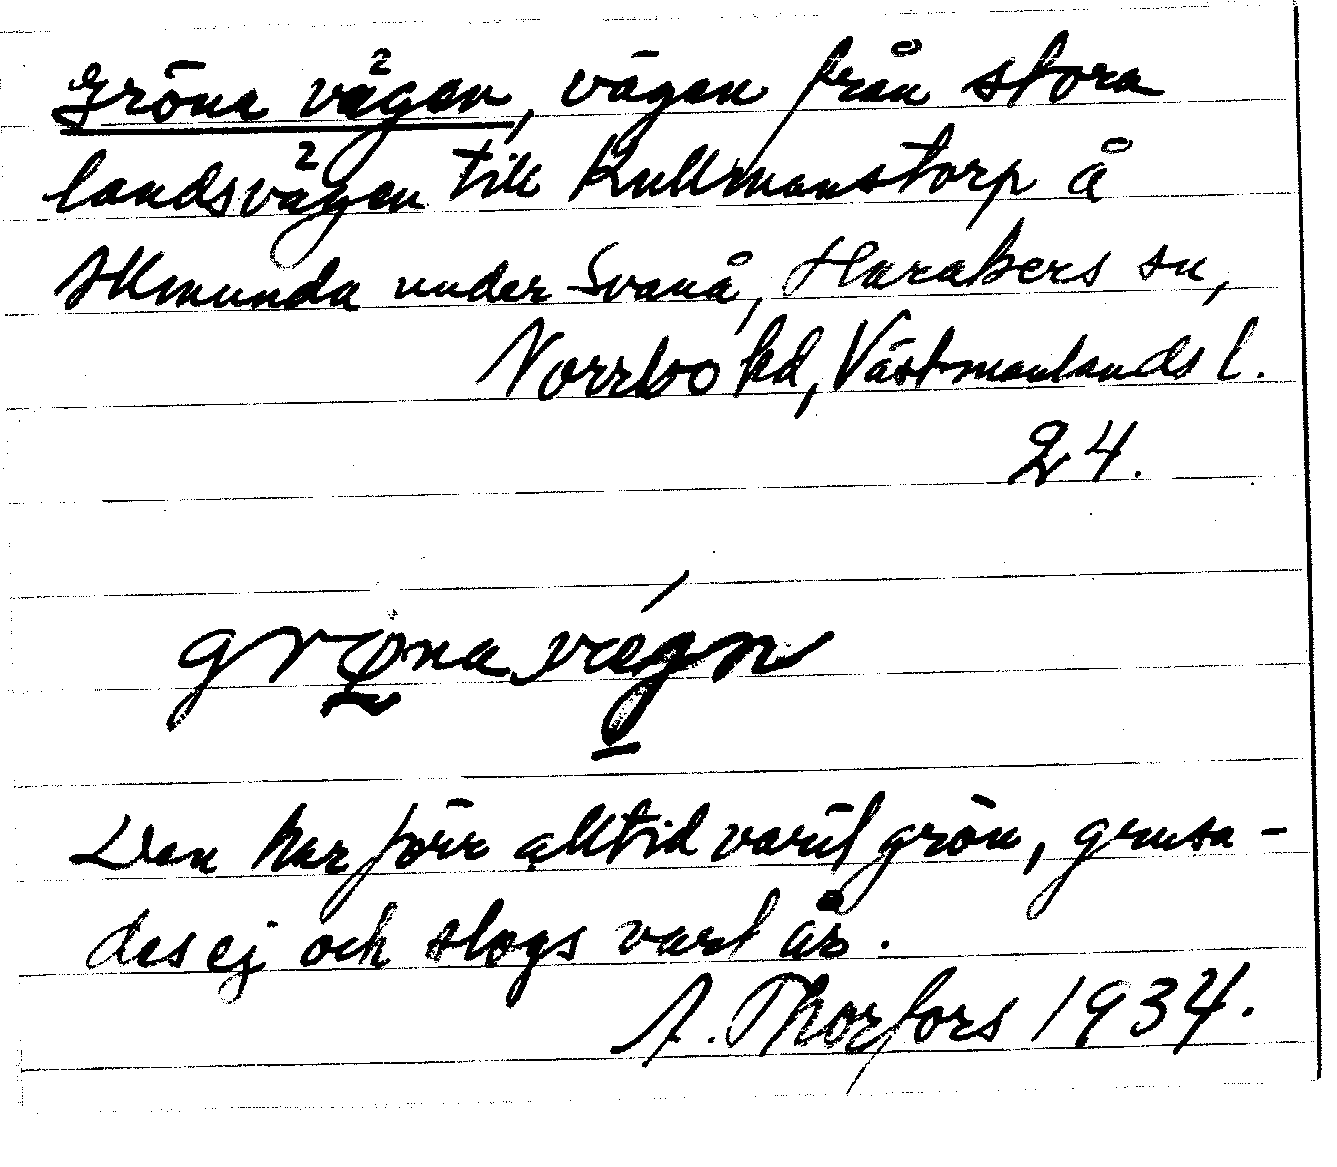 Gröna vägen, vägen från stora
landsvägen till Kullmanstorp å
Allmunda under Svanå, Harakers sn,
Norrbo hd, Västmanlands l.
24.
grøna vægn
Den har förr alltid varit grön, grusa-
des ej och slogs vart år.
A. Thorfors 1934.